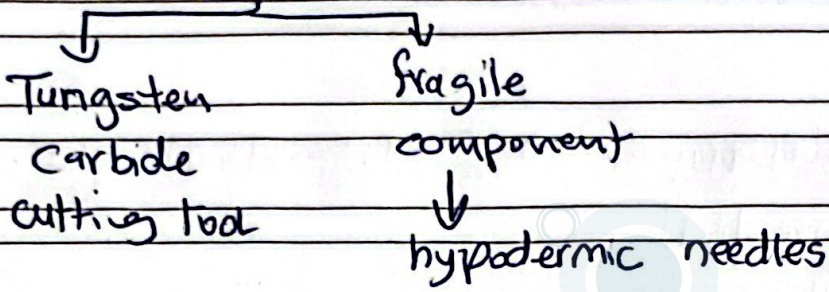 Tungsten
Carbide
cutting tool
fragile
component
hypodermic needles